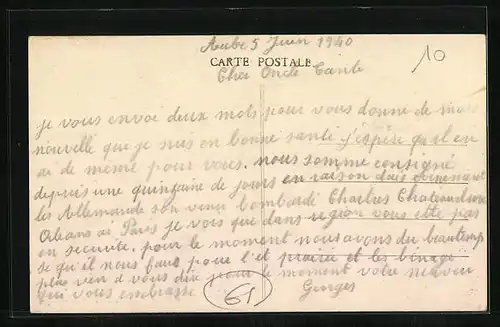 Aube 5 Juin 1940
10
CARTE POSTALE
Cher Oncle Tante
je vous envoi deux mots pour vous donné de mes
nouvelle que je suis en bonne santé j'espère qu'il en
ai de meme pour vous. nous somme consigné
depuis une quinzaine de jours en raison dais evenement
les Allemands son venu bombardé Chartres Chateaudun
Orleans ai Paris je vois que dans region vous ete pas
en securite. pour le moment nous avons du beau temp
se qu'il nous faus pour l'et prairie et les binage
plus rien a vous dire pour le moment votre neveu
qui vous embrasse Georges
61